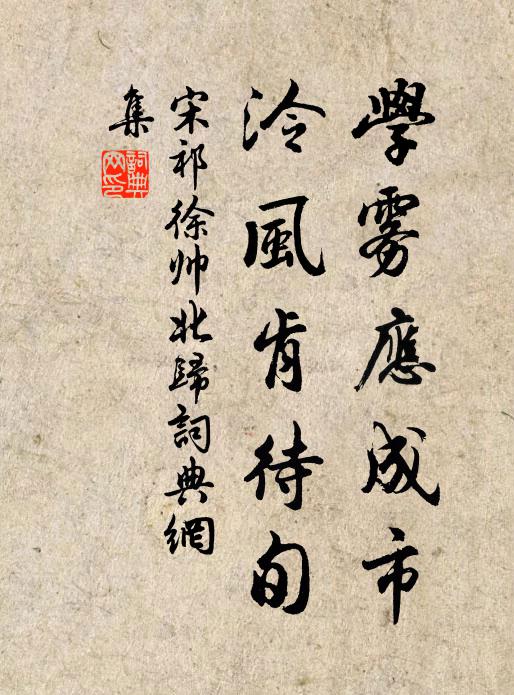 學雾應成市
泠風肯待旬
宋祁徐帅北歸詞典網
集
詞典网印